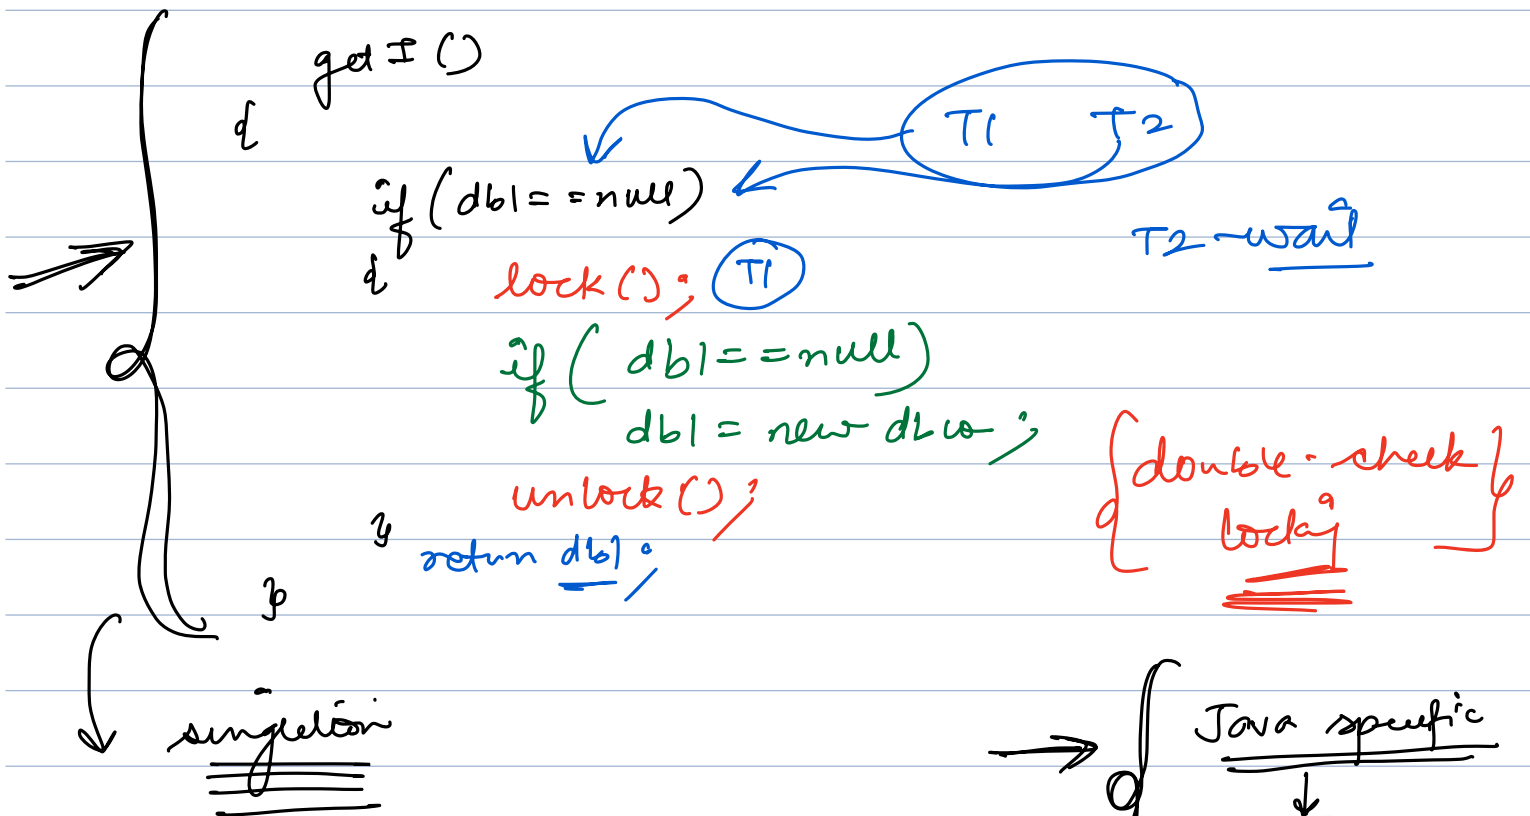 getI()
{
T1 T2
if (db1 == null)
T2 - wait
{
lock(); T1
if ( db1 == null)
db1 = new dbco ;
double-check
unlock();
locking
}
return db1;
}
singleton
Java specific